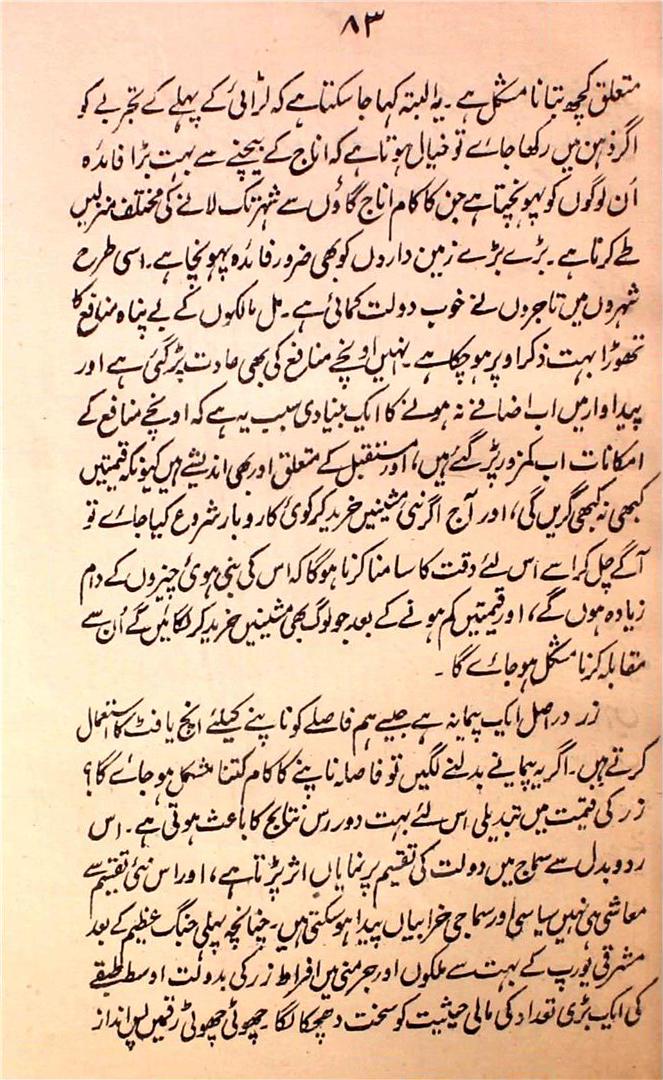 ۸۳
متعلق کچھ بتانا مشکل ہے۔ یہ البتہ کہا جا سکتا ہے کہ لڑائی کے پہلے کے تجربے کو
اگر ذہن میں رکھا جائے تو خیال ہوتا ہے کہ اناج کے بیچنے سے بہت بڑا فائدہ
اُن لوگوں کو پہونچتا ہے جن کا کام اناج گاؤں سے شہر تک لانے کی مختلف منزلیں
طے کرنا ہے۔ بڑے بڑے زمین داروں کو بھی ضرور فائدہ پہونچا ہے۔ اسی طرح
شہروں میں تاجروں نے خوب دولت کمائی ہے۔ مل مالکوں کے بے پناہ منافع کا
تھوڑا بہت ذکر اوپر ہو چکا ہے۔ انہیں اونچے منافع کی بھی عادت پڑ گئی ہے اور
پیداوار میں اب اضافے نہ ہونے کا ایک بنیادی سبب یہ ہے کہ اونچے منافع کے
امکانات اب کمزور پڑ گئے ہیں، اور مستقبل کے متعلق اور بھی اندیشے ہیں کیونکہ قیمتیں
کبھی نہ کبھی گریں گی، اور آج اگر نئی مشینیں خرید کر کوئی کاروبار شروع کیا جائے تو
آگے چل کر اسے اس لئے دقت کا سامنا کرنا ہوگا کہ اس کی بنی ہوئی چیزوں کے دام
زیادہ ہوں گے، اور قیمتیں کم ہونے کے بعد جو لوگ بھی مشینیں خرید کر لگائیں گے اُن سے
مقابلہ کرنا مشکل ہو جائے گا۔
زر دراصل ایک پیمانہ ہے جیسے ہم فاصلے کو ناپنے کیلئے انچ یا فٹ کا استعمال
کرتے ہیں۔ اگر یہ پیمانے بدلنے لگیں تو فاصلہ ناپنے کا کام کتنا مشکل ہو جائے گا؟
زر کی قیمت میں تبدیلی اس لئے بہت دور رس نتایج کا باعث ہوتی ہے۔ اس
ردوبدل سے سماج میں دولت کی تقسیم پر نمایاں اثر پڑتا ہے، اور اس نئی تقسیم سے
معاشی ہی نہیں سیاسی اور سماجی خرابیاں پیدا ہو سکتی ہیں۔ چنانچہ پہلی جنگ عظیم کے بعد
مشرقی یورپ کے بہت سے ملکوں اور جرمنی میں افراط زر کی بدولت اوسط طبقے
کی ایک بڑی تعداد کی مالی حیثیت کو سخت دھچکا لگا۔ چھوٹی چھوٹی رقمیں پس انداز